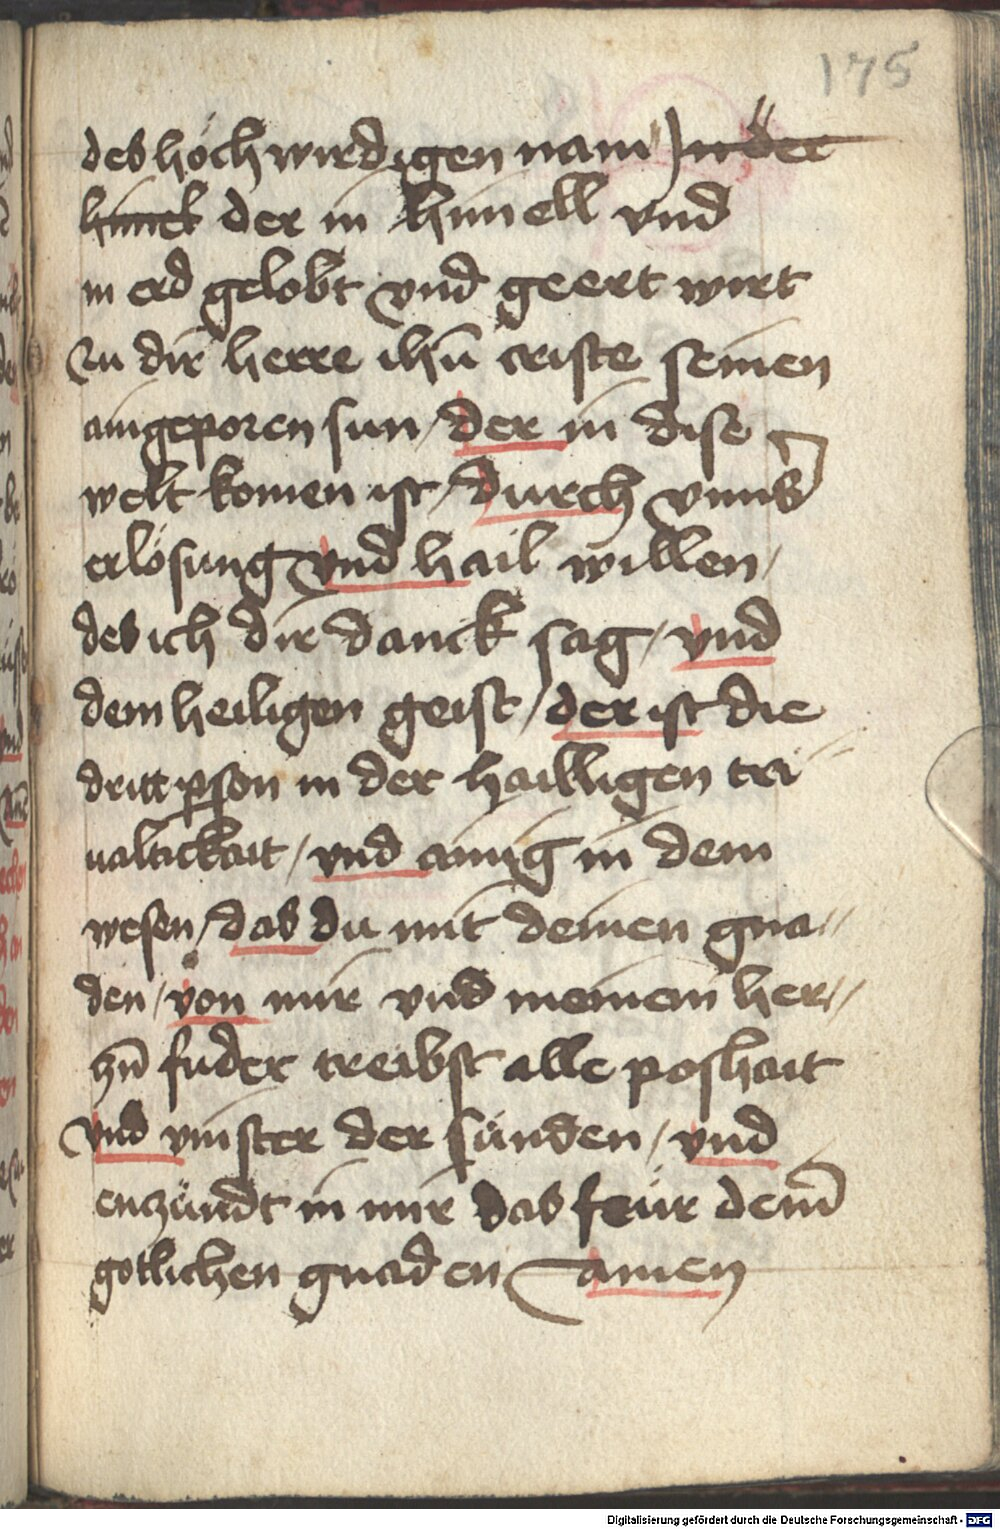 175
des höchwirdigen nam in der
himel der in himell vnd
in erd gelobt vnd geert wirt
zu dir herre ihū criste seinen
aingeporen sun / der in dise
welt komen ist / durch vnns̄
erlösung vnd hail willen /
des ich dir danck sag / vnd
dem heiligen geist / der ist die
dritt pson in der hailligen tri
ualtickait / vnd ainig in dem
wesen / das du mit deinen gna//
den / von mir vnd meinem her//
zn̄ fuder treibst alle poshait
vnd vinster der sünden / vnd
enzündt in mir das feür dein̄
gotlichen gnaden amen
Digitalisierung gefördert durch die Deutsche Forschungsgemeinschaft - DFG